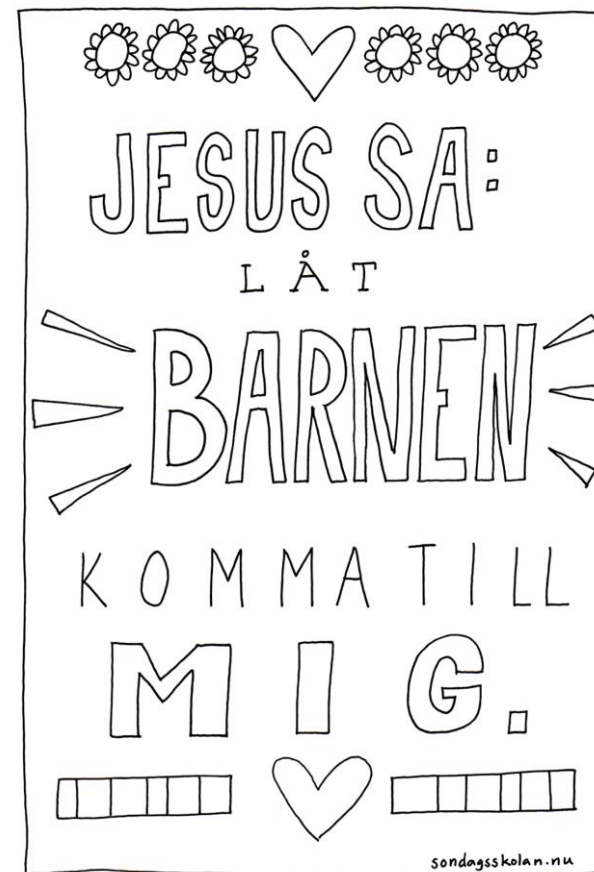 JESUS SA:
LÅT
BARNEN
KOMMA TILL
MIG.
sondagsskolan.nu